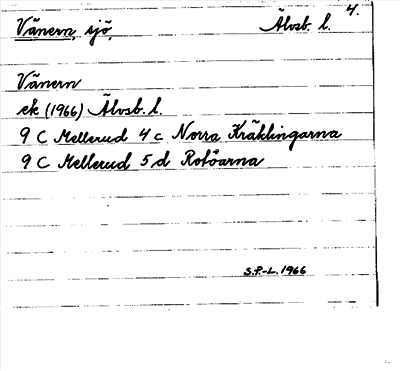 4.
Vänern, sjö, Älvsb. l.
Vänern
ek (1966) Älvsb. l.
9 C Mellerud 4 c Norra Kräklingarna
9 C Mellerud 5 d Rotöarna
S.F.-L. 1966